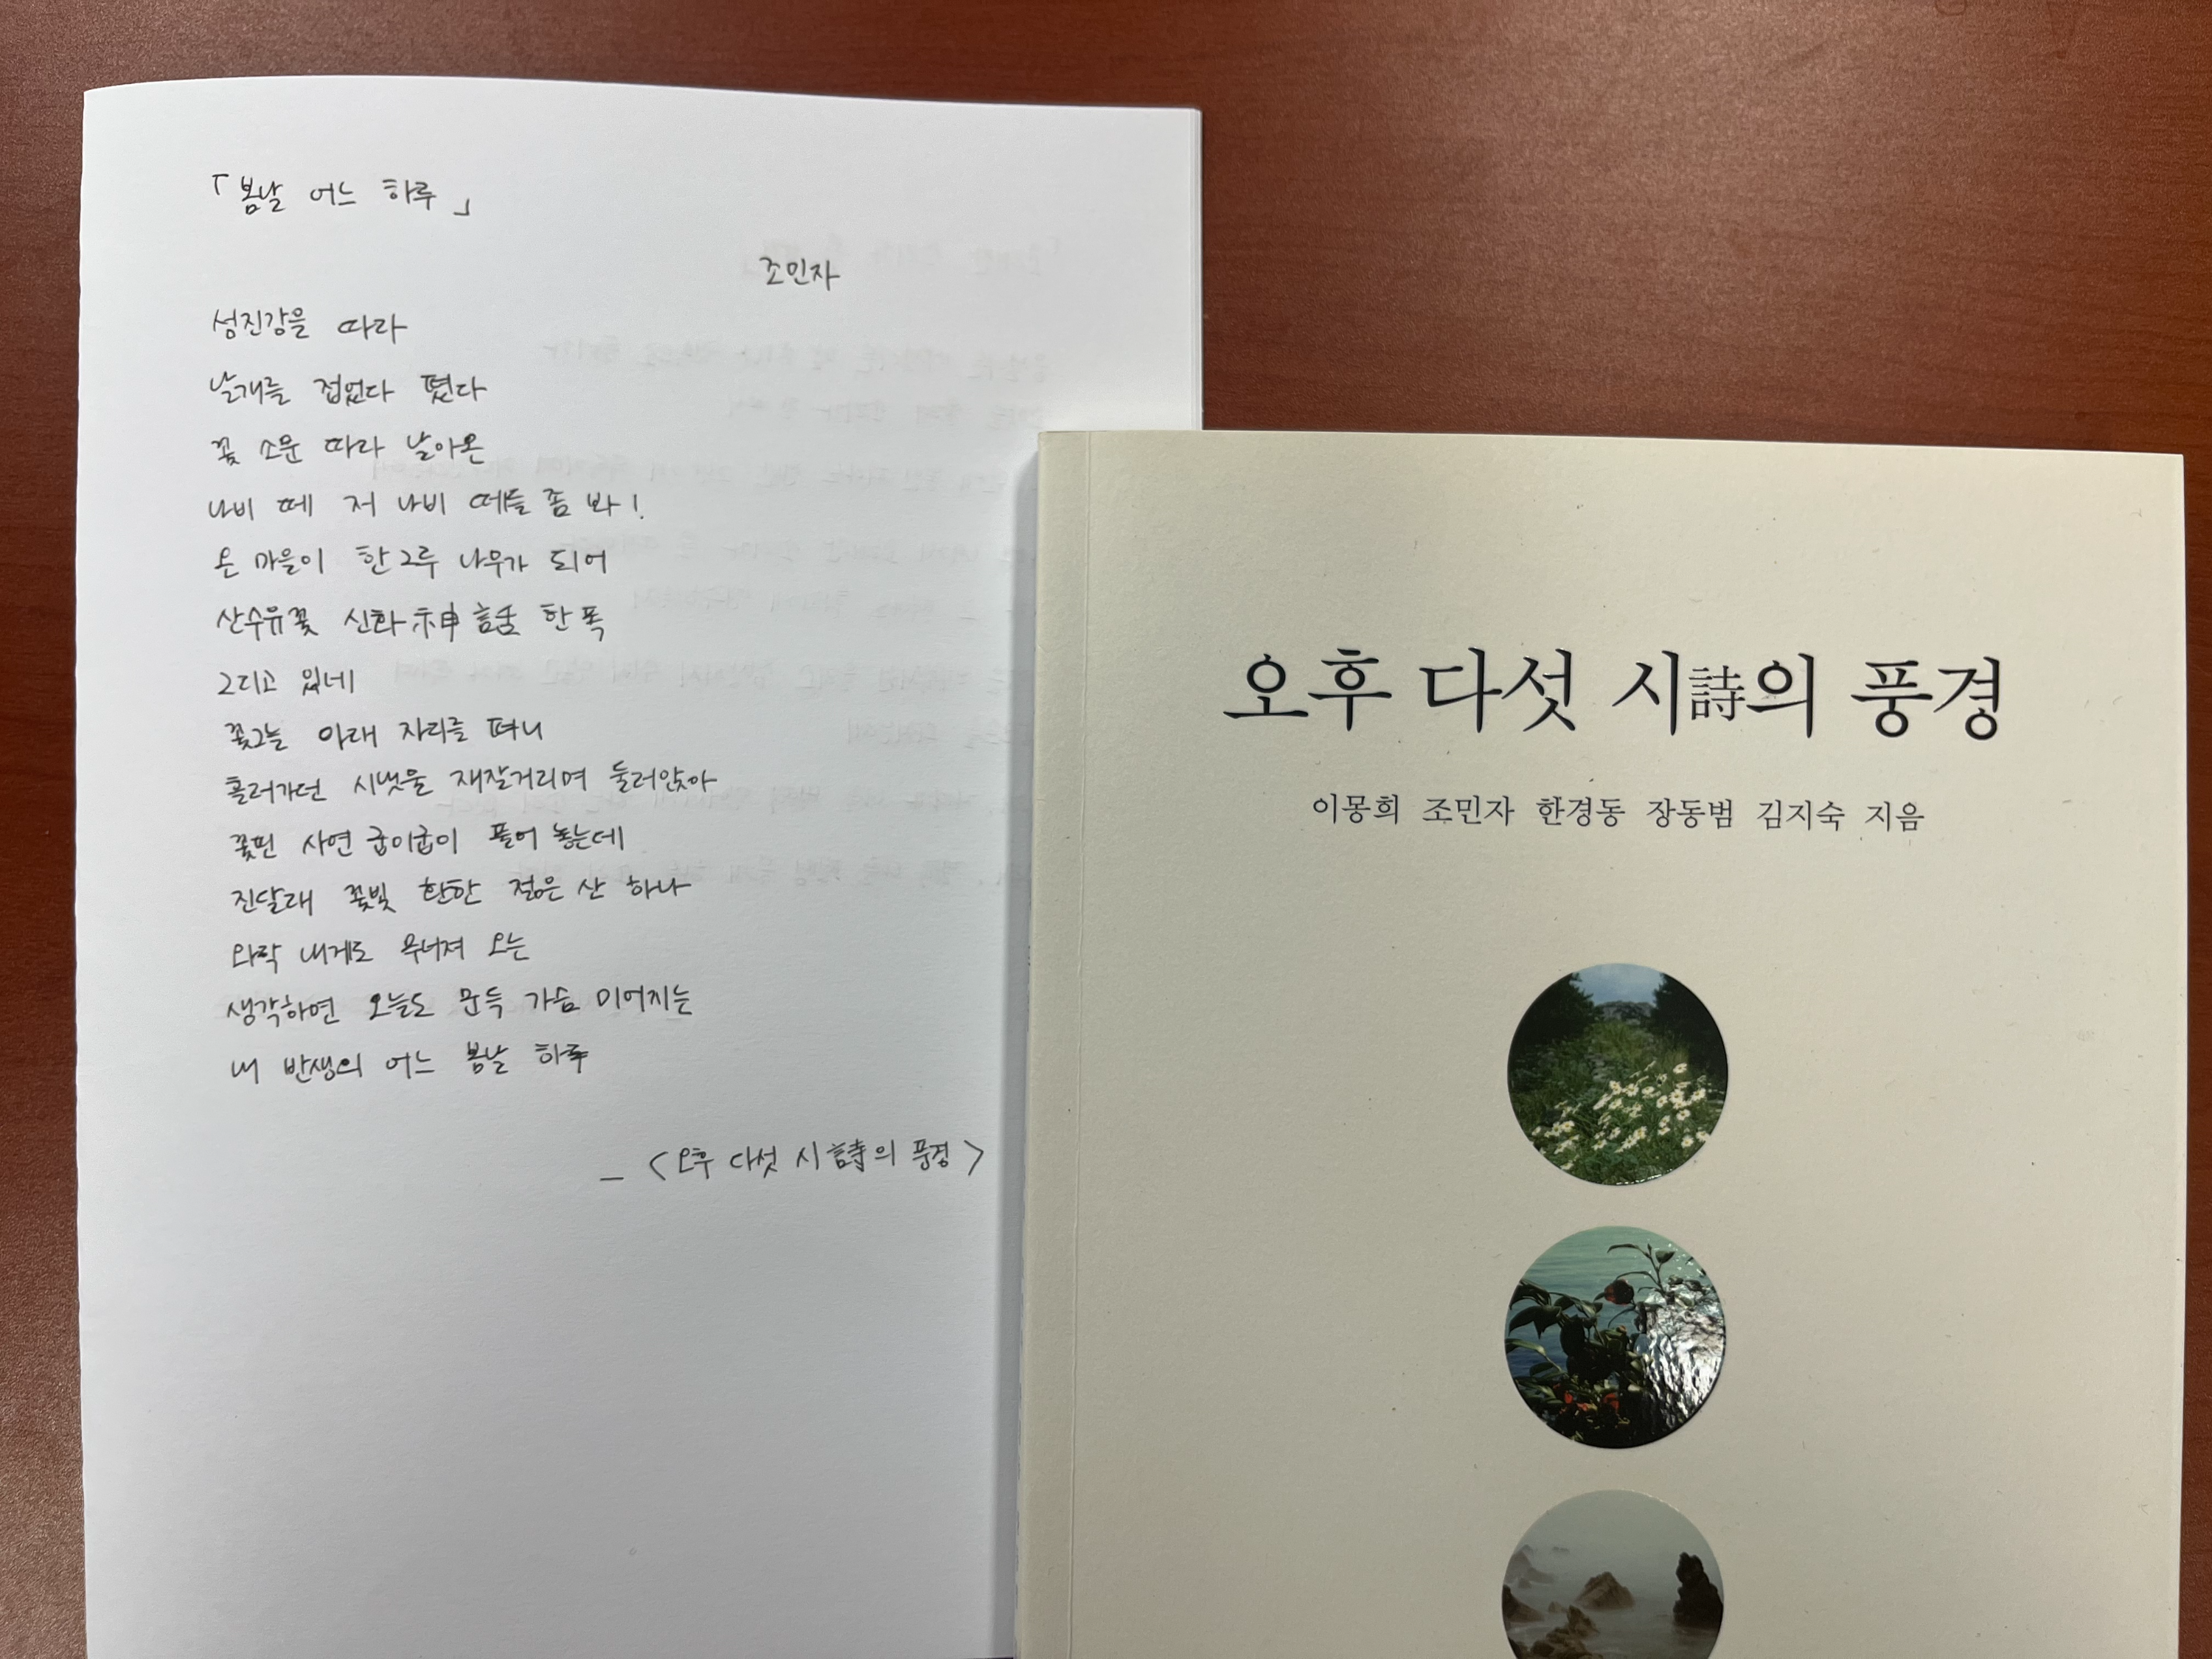 「봄날 어느 하루」
조민자
섬진강을 따라
날개를 접었다 폈다
꽃 소문 따라 날아온
나비 떼 저 나비 떼들 좀 봐!
온 마을이 한 그루 나무가 되어
산수유꽃 신화神話 한 폭
그리고 있네
꽃그늘 아래 자리를 펴니
흘러가던 시냇물 재잘거리며 둘러앉아
꽃핀 사연 굽이굽이 풀어 놓는데
진달래 꽃빛 환한 젊은 산 하나
와락 내게로 무너져 오는
생각하면 오늘도 문득 가슴 미어지는
내 반생의 어느 봄날 하루
_ <오후 다섯 시詩의 풍경>
오후 다섯 시詩의 풍경
이몽희 조민자 한경동 장동범 김지숙 지음